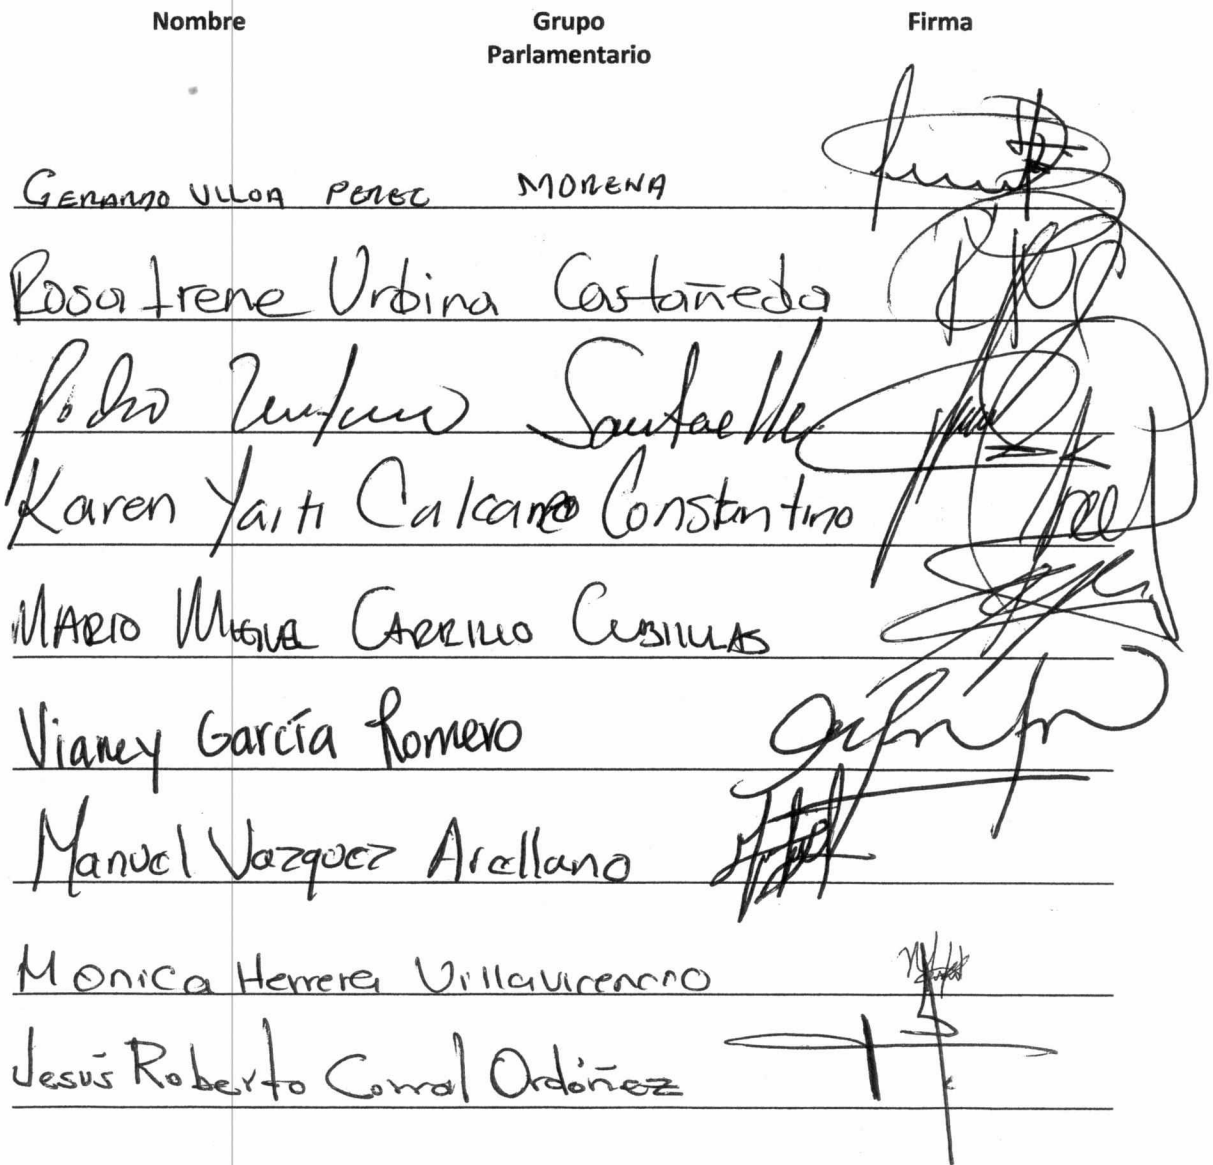 Nombre Grupo Parlamentario Firma
GERARDO ULLOA PEREZ MORENA
Rosa Irene Urbina Castañeda
Pedro Zenteno Santaella
Karen Yaiti Calcaneo Constantino
MARIO MIGUEL CARRILLO CUBILLAS
Vianey García Romero
Manuel Vazquez Arellano
Monica Herrera Villavicencio
Jesús Roberto Corral Ordóñez